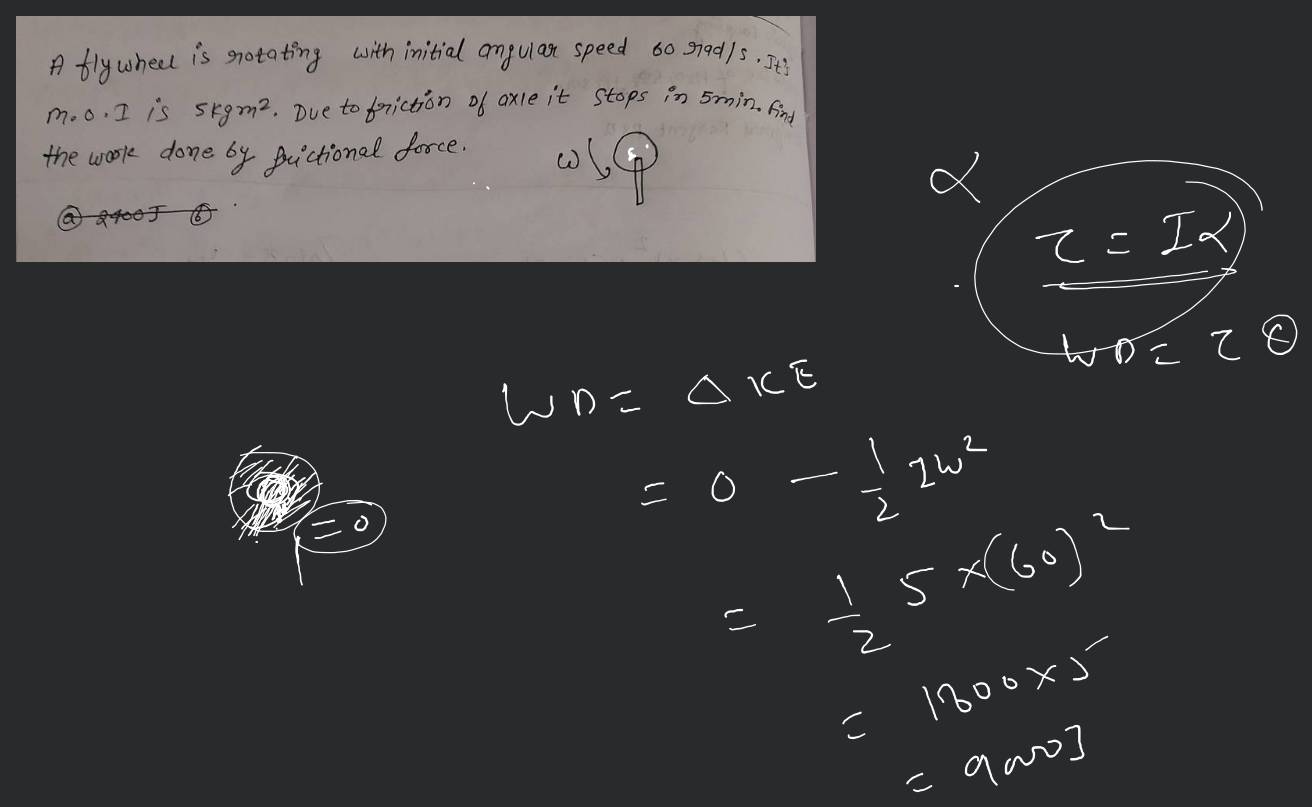 A flywheel is rotating with initial angular speed 60 rad/s. It's
M.O.I is 5kgm². Due to friction of axle it stops in 5min. Find
the work done by frictional force.
ω
ⓐ 2400J ⓑ
α
τ = Iα
WD = τ
WD = ΔKE
= 0 - 1/2 Iω²
= 1/2 5 × (60)²
= 1800×5
= 9000J
= 0